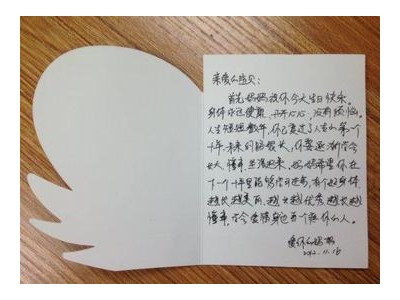 亲爱的宝贝:
首先妈妈祝你今天生日快乐。
身体永远健康、开开心心,没有烦恼。
人生短短数年,你已度过了人生的第一个
十年,未来的路很长,你要逐渐学会
长大、懂事、
妈妈希望你在
下一个十年里能够学习进步,有个好身体,
越长越美丽,越大越优秀,越长越
懂事,学会爱惜身边每一个
爱你的妈妈
2012.11.16